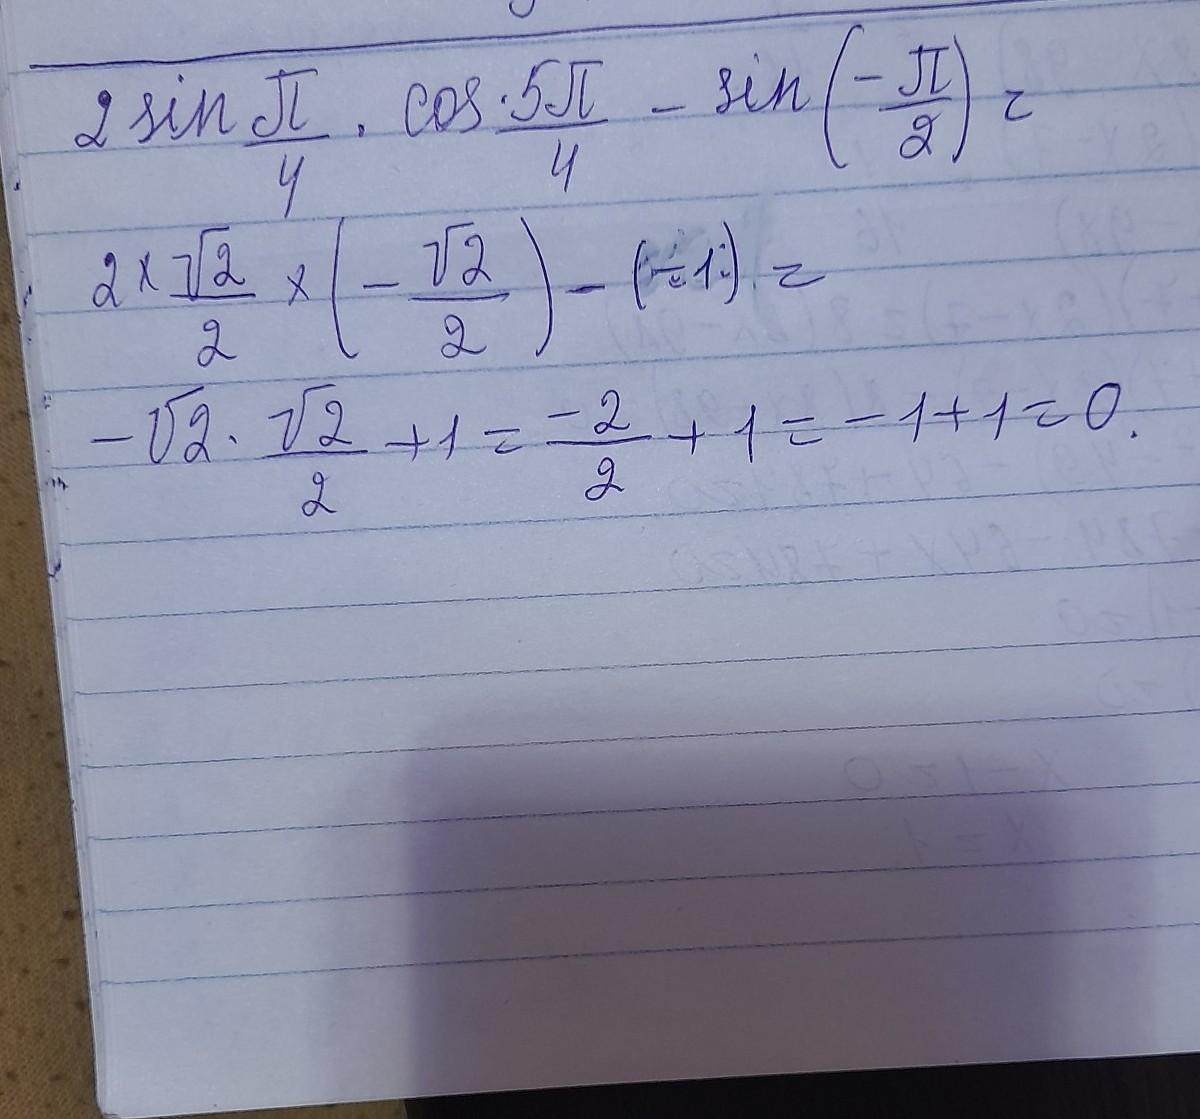 2 sin π/4 · cos · 5π/4 - sin (-π/2) =
2 × √2/2 × (-√2/2) - (-1) =
-√2 · √2/2 + 1 = -2/2 + 1 = -1 + 1 = 0.